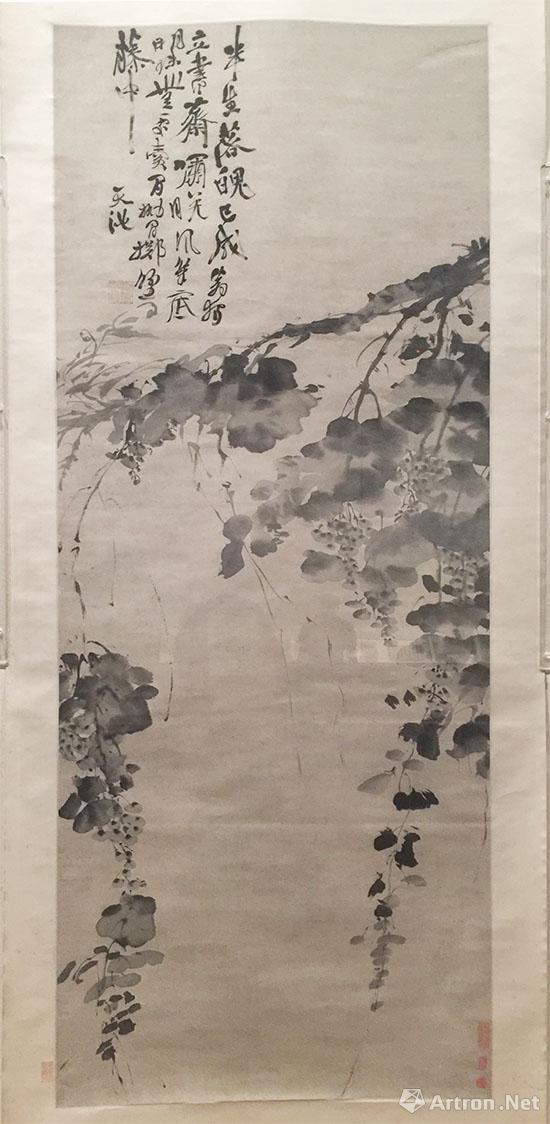 半生落魄已成翁獨
立書齋嘯晚風筆底
明珠無處賣閒拋閒擲野
藤中
天池
Artron.Net